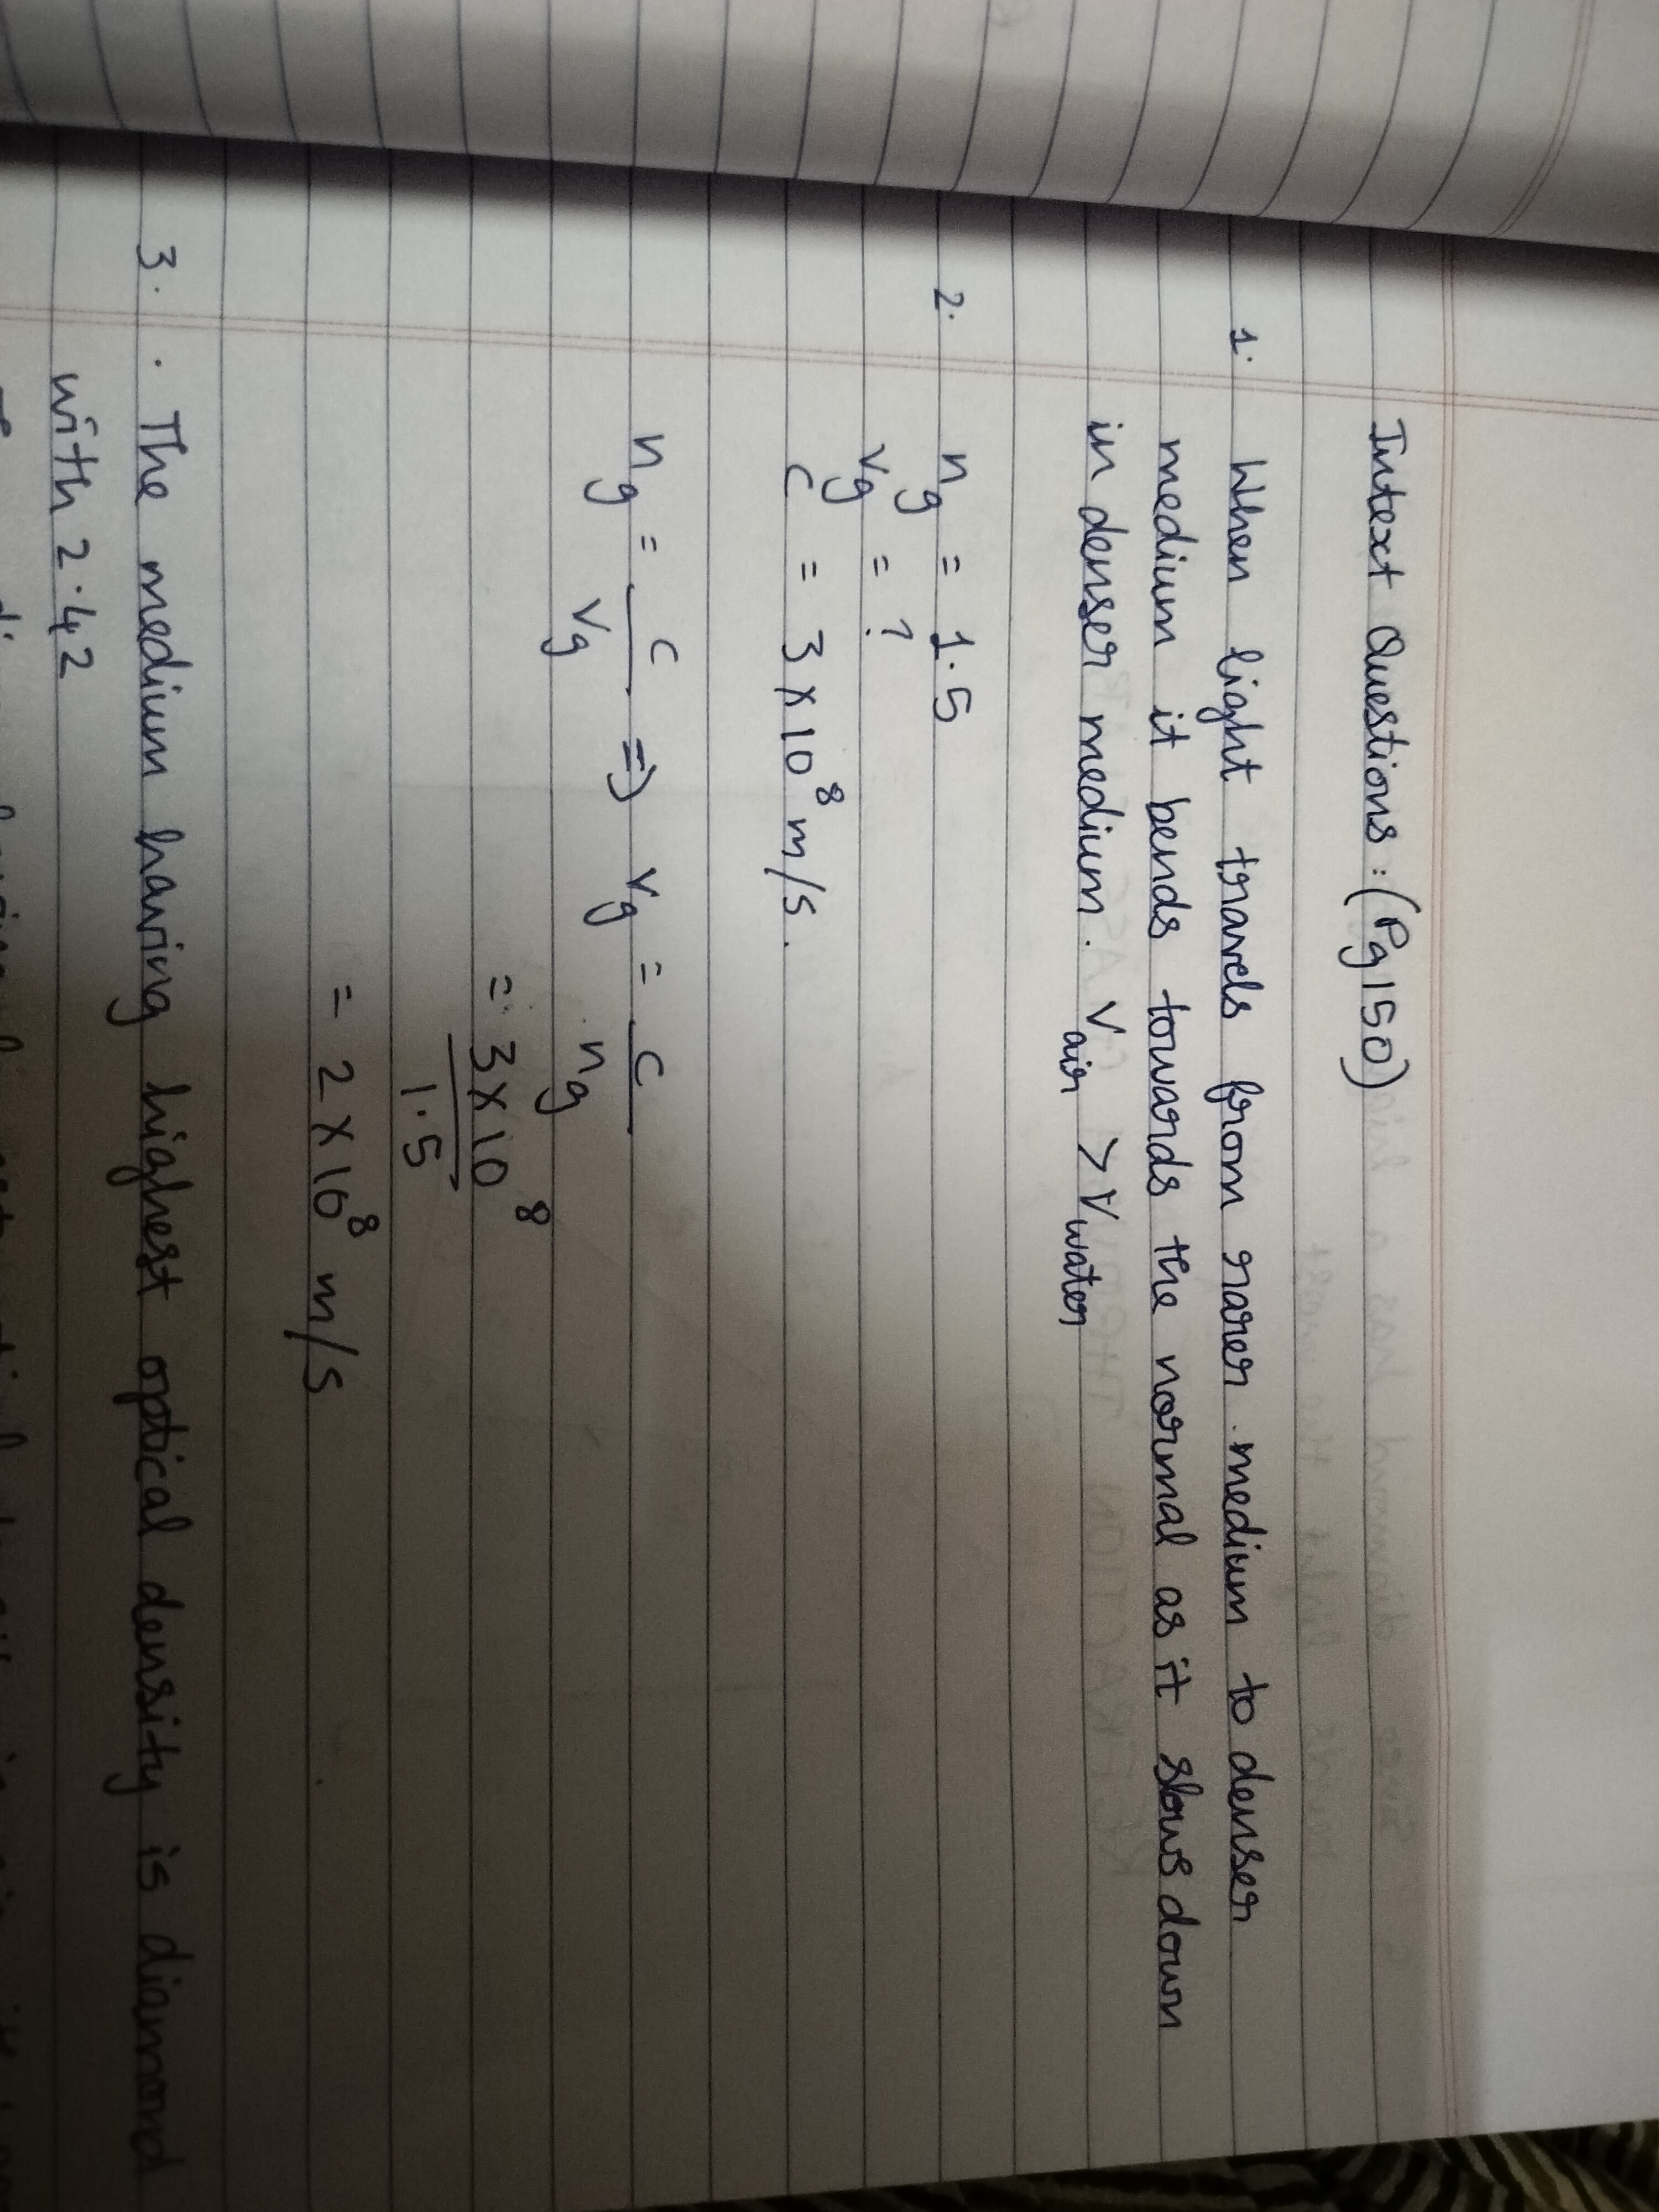 Intext Questions : (Pg 150)
1. When light travels from rarer medium to denser
medium it bends towards the normal as it slows down
in denser medium. v air > v water
2. n g = 1.5
v g = ?
c = 3 × 10⁸ m/s.
n g = c / v g => v g = c / n g
= 3 × 10⁸ / 1.5
= 2 × 10⁸ m/s
3. . The medium having highest optical density is diamond
with 2.42